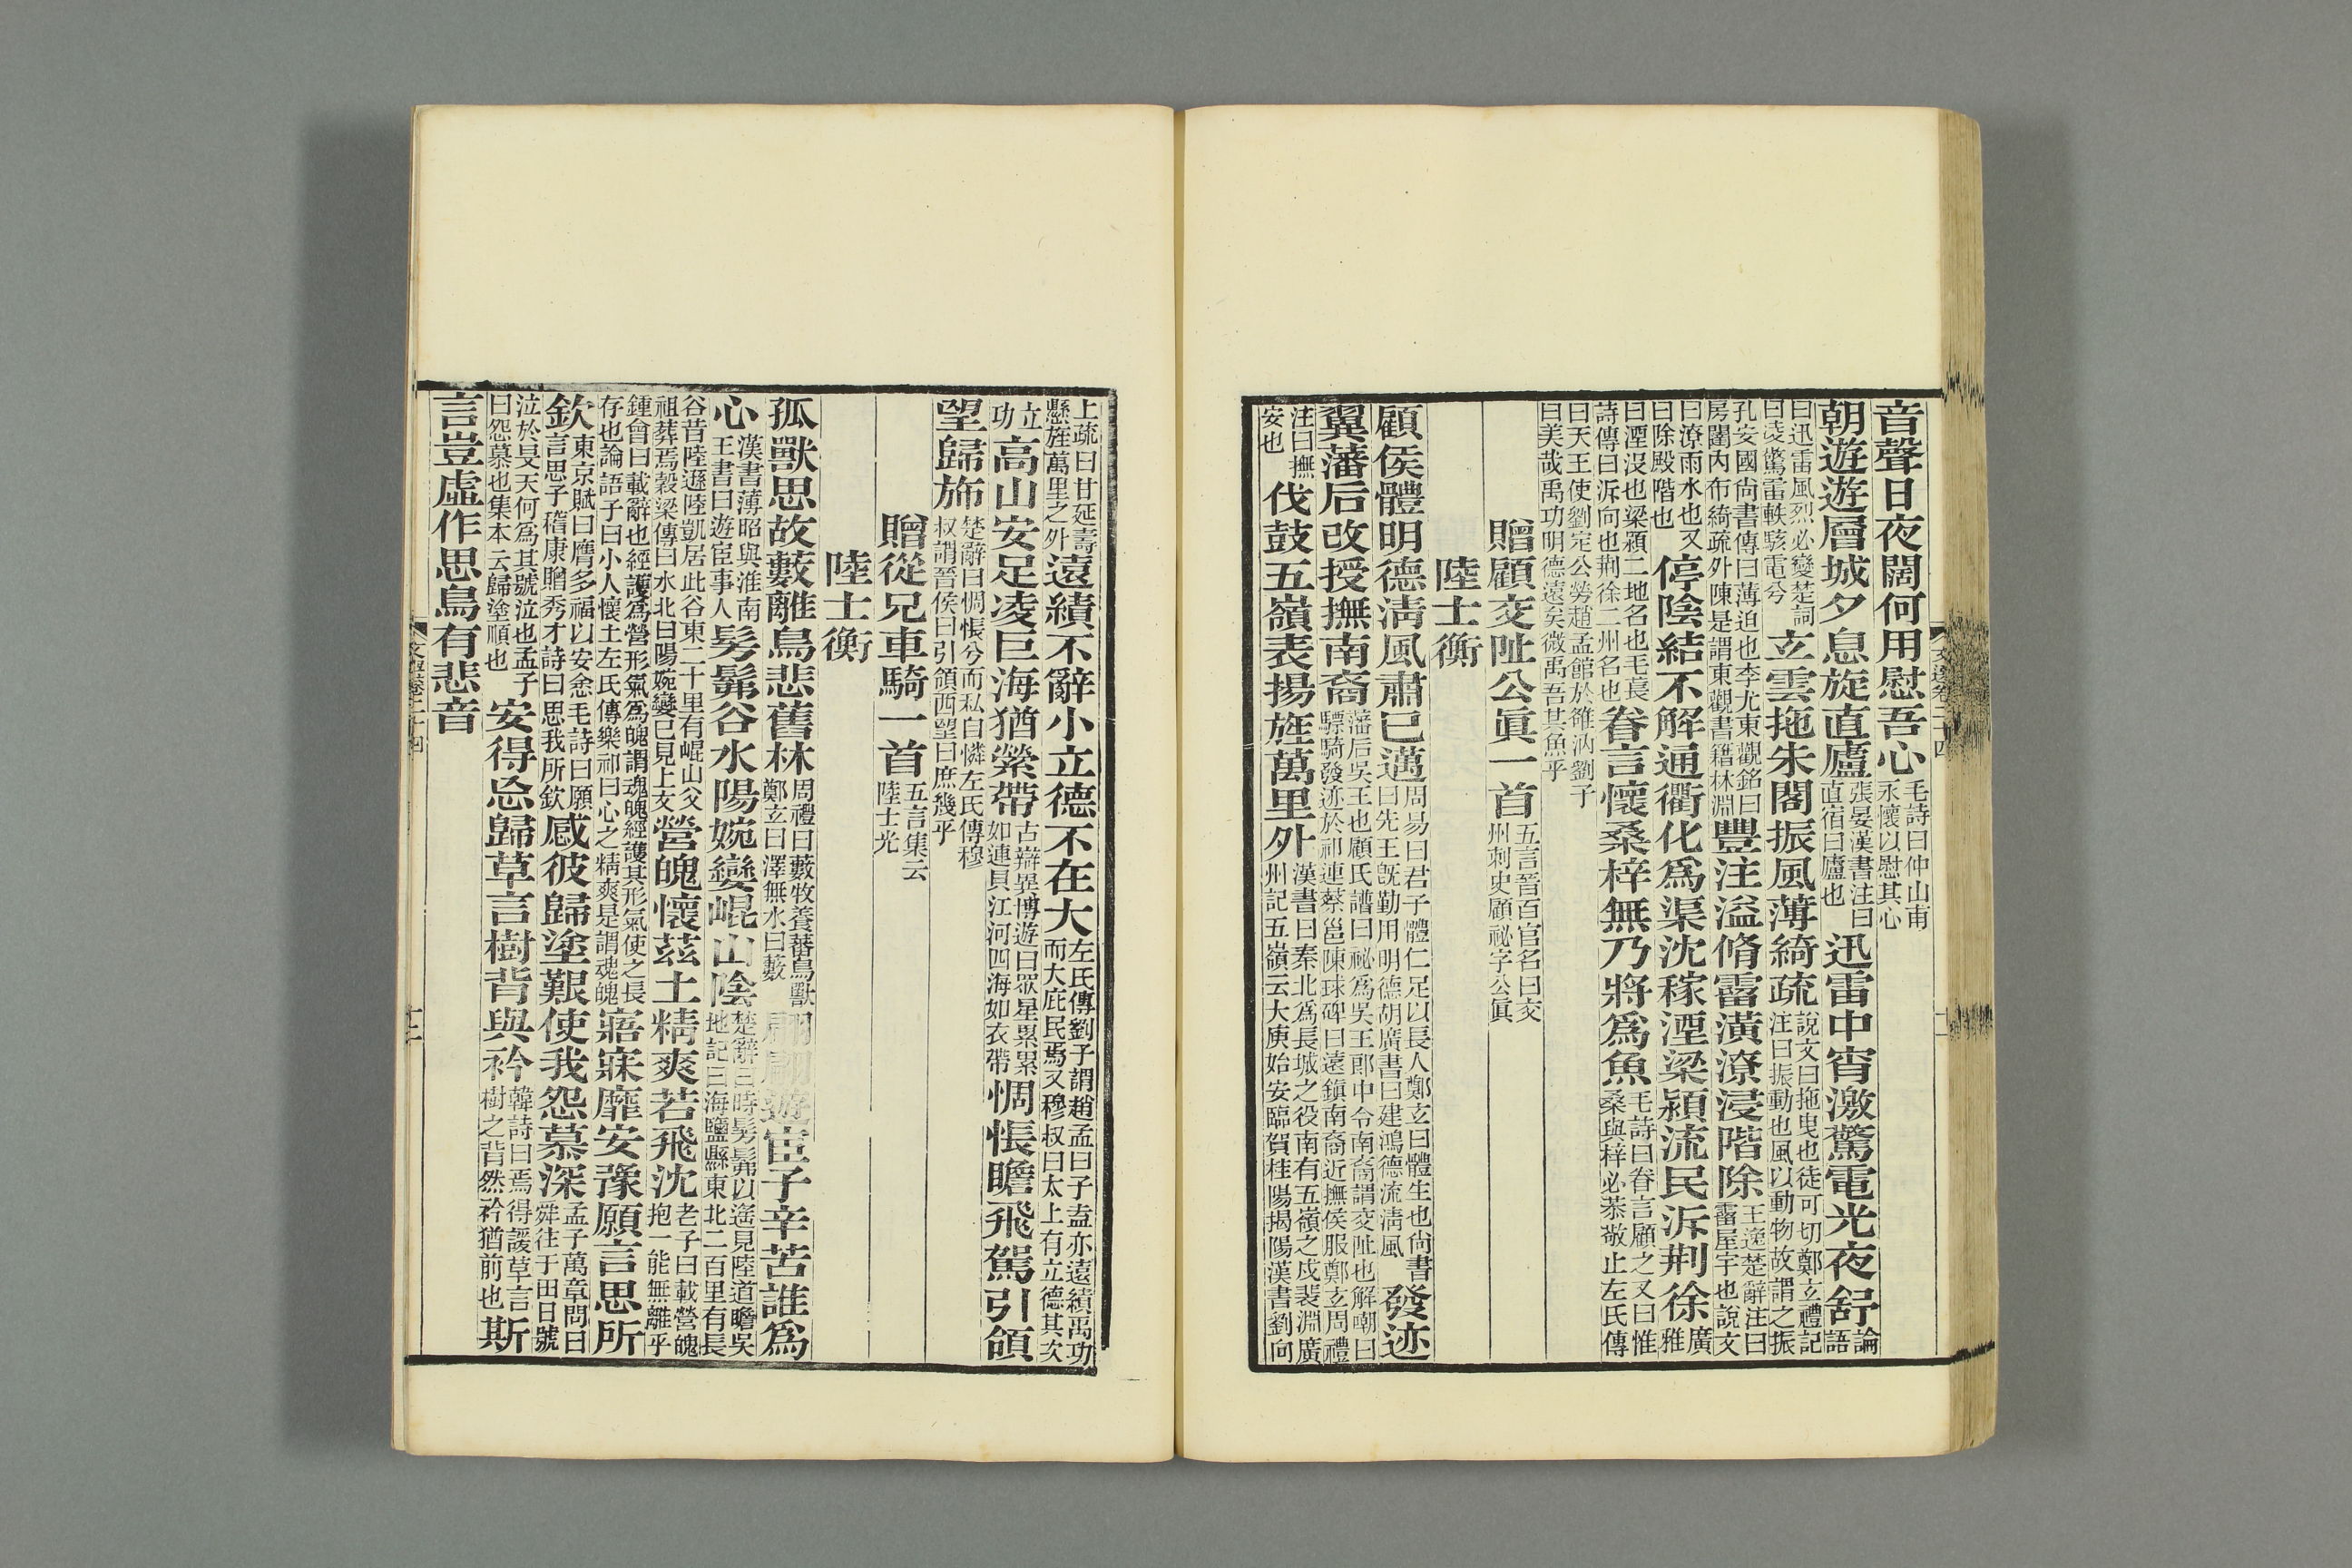 音聲日夜闊何用慰吾心毛詩曰仲山甫永懷以慰其心
朝遊遊層城夕息旋直廬張晏漢書注曰直宿曰廬也迅雷中宵激驚電光夜舒論語
曰迅雷風烈必變楚詞曰凌驚雷軼駭電兮玄雲拖朱閣振風薄綺疏說文曰拖曳也徒可切鄭玄禮記注曰振動也風以動物故謂之振
孔安國尚書傳曰薄迫也李尤東觀銘曰房闥內布綺疏外陳是謂東觀書籍林淵豐注溢脩霤潢潦浸階除王逸楚辭注曰霤屋宇也說文
曰潦雨水也又曰除殿階也停陰結不解通衢化爲渠沈稼湮梁潁流民泝荆徐廣雅
曰湮沒也梁潁二地名也毛萇詩傳曰泝向也荆徐二州名也眷言懷桑梓無乃將爲魚毛詩曰眷言顧之又曰惟桑與梓必恭敬止左氏傳
曰天王使劉定公勞趙孟館於雒汭劉子曰美哉禹功明德遠矣微禹吾其魚乎
贈顧交阯公眞一首五言晉百官名曰交州刺史顧祕字公眞
陸士衡
顧侯體明德淸風肅已邁周易曰君子體仁足以長人鄭玄曰體生也尙書曰先王旣勤用明德胡廣書曰建鴻德流淸風發迹
翼藩后改授撫南裔藩后吳王也顧氏譜曰祕爲吳王郎中令南裔謂交阯也解嘲曰驃騎發迹於祁連蔡邕陳球碑曰遠鎭南裔近撫侯服鄭玄周禮
注曰撫安也伐鼓五嶺表揚旌萬里外漢書曰秦北爲長城之役南有五嶺之戍裴淵廣州記五嶺云大庾始安臨賀桂陽揭陽漢書劉向
文選卷二十四
上疏曰甘延壽懸旌萬里之外遠績不辭小立德不在大左氏傳劉子謂趙孟曰子盍亦遠績禹功而大庇民焉又穆叔曰太上有立德其次
立功高山安足凌巨海猶縈帶古辯異博遊曰眾星累累如連貝江河四海如衣帶惆悵瞻飛駕引領
望歸旆楚辭曰惆悵兮而私自憐左氏傳穆叔謂晉侯曰引領西望曰庶幾乎
贈從兄車騎一首五言集云陸士光
陸士衡
孤獸思故藪離鳥悲舊林周禮曰藪牧養蕃鳥獸鄭玄曰澤無水曰藪翩翩遊宦子辛苦誰爲
心漢書薄昭與淮南王書曰遊宦事人髣髴谷水陽婉孌崐山陰楚辭曰時髣髴以遙見陸道瞻吳地記曰海鹽縣東北二百里有長
谷昔陸遜陸凱居此谷東二十里有崐山父祖葬焉穀梁傳曰水北曰陽婉孌已見上文營魄懷茲土精爽若飛沈老子曰載營魄抱一能無離乎
鍾會曰載辭也經護爲營形氣爲魄謂魂魄經護其形氣使之長存也論語子曰小人懷土左氏傳樂祁曰心之精爽是謂魂魄寤寐靡安豫願言思所
欽東京賦曰膺多福以安悆毛詩曰願言思子嵇康贈秀才詩曰思我所欽感彼歸塗艱使我怨慕深孟子萬章問曰舜往于田日號
泣於旻天何爲其號泣也孟子曰怨慕也集本云歸塗順也安得忘歸草言樹背與衿韓詩曰焉得諼草言樹之背然衿猶前也斯
言豈虛作思鳥有悲音
文選卷二十四 十二